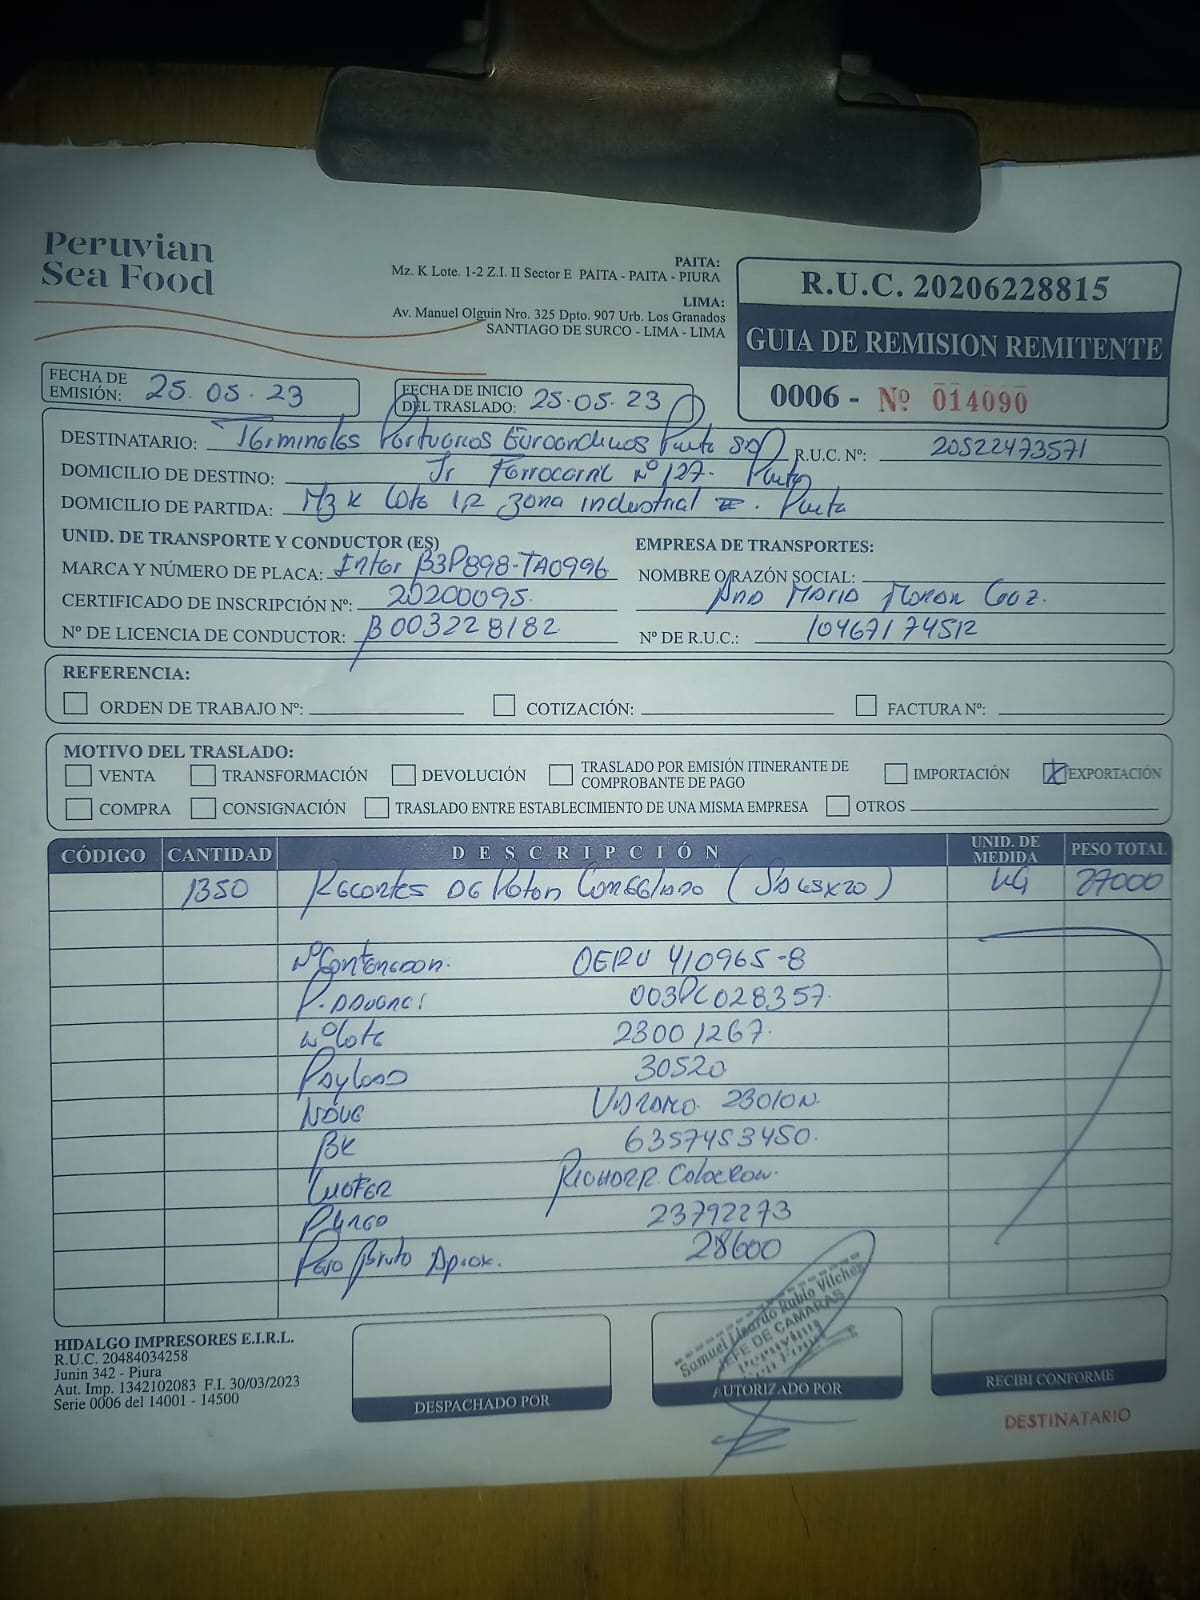 Peruvian
Sea Food
PAITA:
Mz. K Lote. 1-2 Z.I. II Sector E PAITA - PAITA - PIURA
LIMA:
Av. Manuel Olguin Nro. 325 Dpto. 907 Urb. Los Granados
SANTIAGO DE SURCO - LIMA - LIMA
R.U.C. 20206228815
GUIA DE REMISION REMITENTE
0006 - Nº 014090
FECHA DE EMISIÓN: 25.05.23
FECHA DE INICIO DEL TRASLADO: 25.05.23
DESTINATARIO: Terminales Portuarios Euroandinos Paita R.U.C. Nº: 20522473571
DOMICILIO DE DESTINO: Jr Ferrocarril Nº 127. Paita
DOMICILIO DE PARTIDA: Mz K Lote 1,2 Zona industrial II. Paita
UNID. DE TRANSPORTE Y CONDUCTOR (ES)
MARCA Y NÚMERO DE PLACA: Inter B3P898-TA0996
CERTIFICADO DE INSCRIPCIÓN Nº: 20200095.
Nº DE LICENCIA DE CONDUCTOR: B003228182
EMPRESA DE TRANSPORTES:
NOMBRE O RAZÓN SOCIAL:
Ana Maria Moran
Nº DE R.U.C.: 10467174512
REFERENCIA:
ORDEN DE TRABAJO Nº: COTIZACIÓN: FACTURA Nº:
MOTIVO DEL TRASLADO:
VENTA TRANSFORMACIÓN DEVOLUCIÓN TRASLADO POR EMISIÓN ITINERANTE DE COMPROBANTE DE PAGO IMPORTACIÓN X EXPORTACIÓN
COMPRA CONSIGNACIÓN TRASLADO ENTRE ESTABLECIMIENTO DE UNA MISMA EMPRESA OTROS
CÓDIGO CANTIDAD DESCRIPCIÓN UNID. DE MEDIDA PESO TOTAL
1350 Recortes de Poton Congelado KG 27000
Nº Contenedor. OERU 410965-8
P. Aduana: 003PC028357.
Nº Lote 23001267.
Payload 30520
Nave 23010N.
BK 6357453450.
Chofer Richard
23792273
Peso Bruto Aprox. 28600
HIDALGO IMPRESORES E.I.R.L.
R.U.C. 20484034258
Junin 342 - Piura
Aut. Imp. 1342102083 F.I. 30/03/2023
Serie 0006 del 14001 - 14500
DESPACHADO POR
Samuel Linardo Rubio Vilchez
JEFE DE CAMARAS
Peruvian
Sea Food
AUTORIZADO POR
RECIBI CONFORME
DESTINATARIO